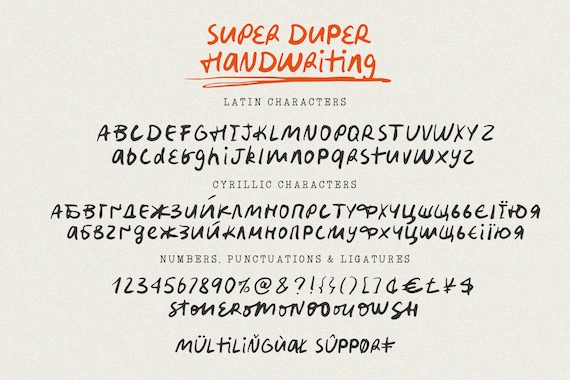 SUPER DUPER
HANDWRiting
LATIN CHARACTERS
ABCDEFGHIJKLMNOPQRSTUVWXYZ
abcdefghijklmnopqrstuvwxyz
CYRILLIC CHARACTERS
АБВГҐДЕЖЗИЙКЛМНОПРСТУФХЧЦШЩЬЄІЇЮЯ
абвгґдежзийклмнопрстуфхчцшщьєіїюя
NUMBERS, PUNCTUATIONS & LIGATURES
1234567890%@&?!{}()[]¢€£¥$
MÜLtiLiŇGÙAŁ SÛPPORT